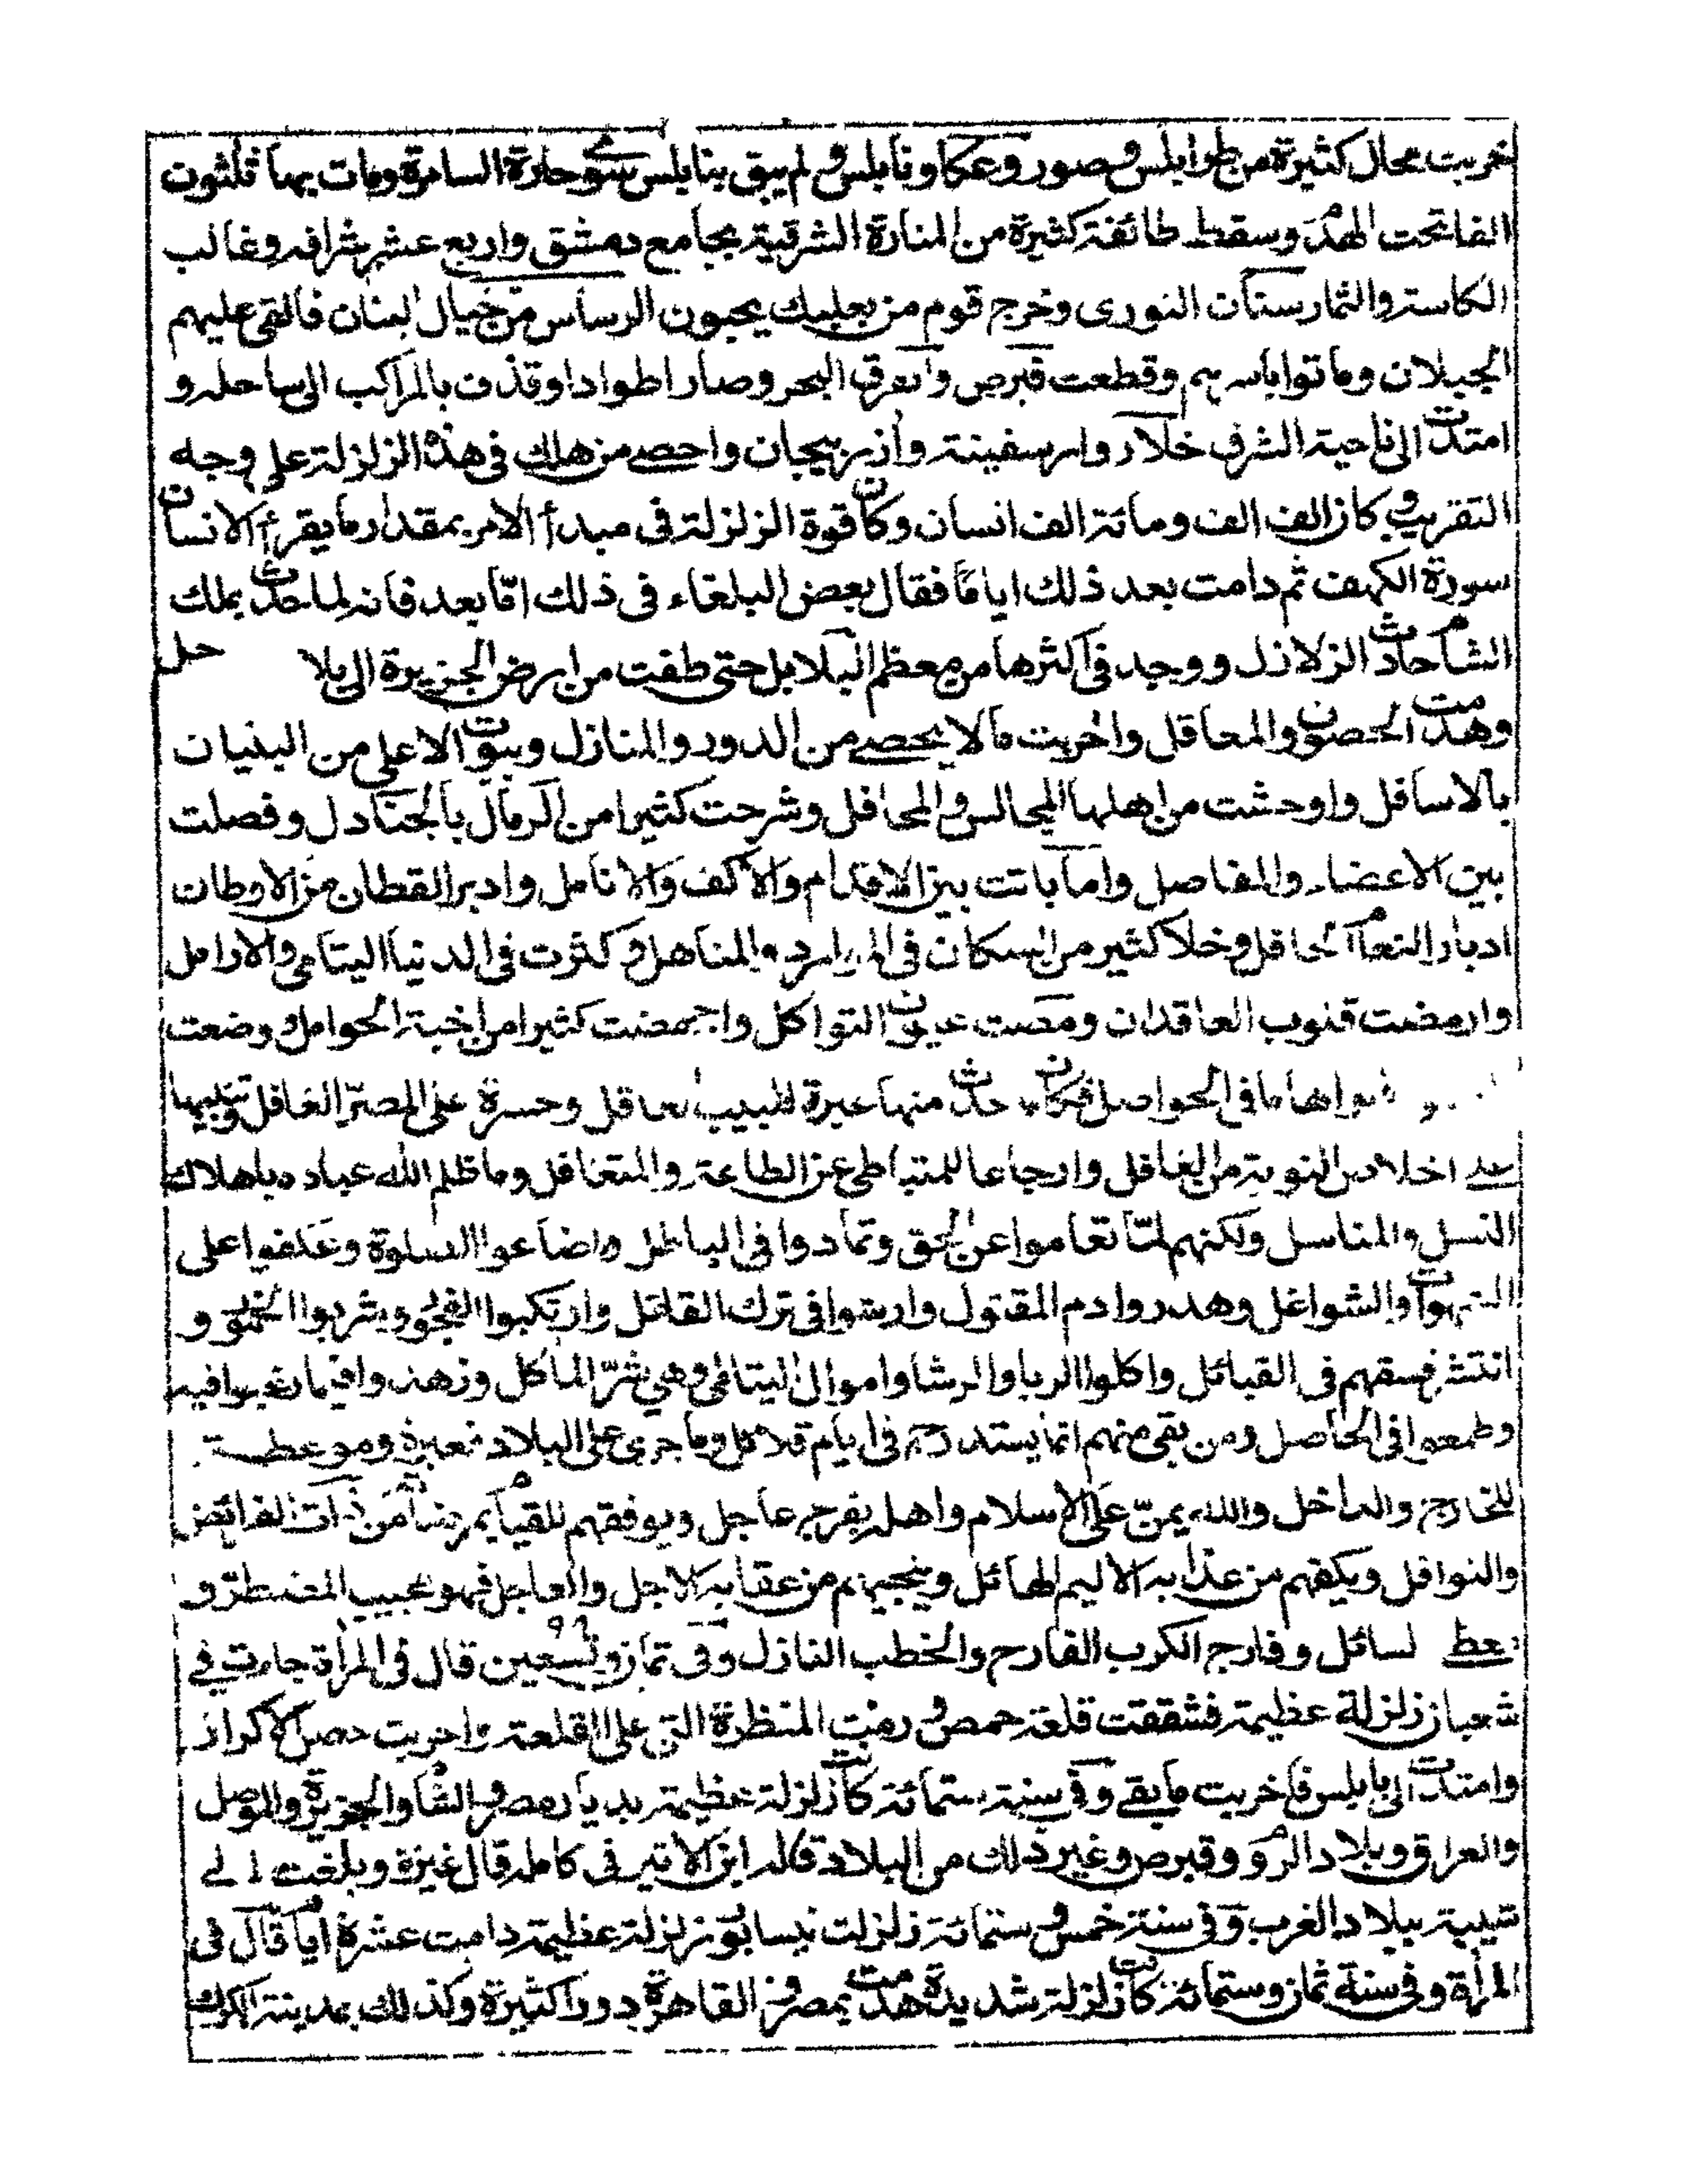 خربت محال كثيرة من طرابلس وصور وعكا ونابلس ولم يبق بنابلس سوى حارة السامرة ومات بها ثلثون
الفا تحت الهدم وسقط طائفة كثيرة من المنارة الشرقية بجامع دمشق واربع عشر شرافه وغالب
الكاسة والثمارستان النورى وخرج قوم من بعلبك يجبون الرساس من جبال لبنان فالتقى عليهم
الجبلان وماتوا باسرهم وقطعت قبرص وانفرق البحر وصار اطوادا وقذف بالمراكب الى ساحله و
امتدت الى ناحية الشرف خلار وارسفينة وأذربيجان واحصى من هلك فى هذه الزلزلة على وجه
التقريب وكان الف الف ومائة الف انسان وكان قوة الزلزلة فى مبدأ الامر بمقدار ما يقرأ الانسان
سورة الكهف ثم دامت بعد ذلك اياما فقال بعض البلغاء فى ذلك امّا بعد فانه لما حدث بملك
الشام حادث الزلازل ووجد فى اكثرها من معظم البلابل حتى طفت من ارض الجزيرة الى بلا حل
وهدمت الحصون والمعاقل واخربت مالا يحصى من الدور والمنازل وبيوت الاعلى من البنيان
بالاسافل واوحشت من اهلها المجالس والمحافل وشرحت كثيرا من الرمال بالجنادل وفصلت
بين الاعضاء والمفاصل واما باتت بين الاقدام والاكف والانامل وادبر القطان من الاوطان
ادبار النعام الحافل وخلا كثير من السكان فى الموارد والمناهل وكثرت فى الدنيا اليتامى والارامل
وارمضت قلوب العاقدان ومصت عيون التواكل واجهضت كثيرا من اخبة الحوامل ووضعت
ما فى الحواصل فكان حدث منها عبرة للبيب لعاقل وحسرة على المصرّ الغافل وتنبيها
على اخلاص التوبة من الغافل وارجاعا للمتباطى عن الطاعة والمتغافل وما ظلم الله عباده باهلاك
النسل والمناسل ولكنهم لمّا تعاموا عن الحق وتمادوا فى الباطل واضاعوا الصلوة وعكفوا على
الشهوات والشواغل وهدروا دم المقتول وارشوا فى ترك القاتل وارتكبوا الفجور وشربوا الخمور و
انتشر فسقهم فى القبائل واكلوا الربا والرشا واموال اليتامى وهى شرّ الماكل وزهدوا فيما رغبوا فيه
وطمعوا فى الحاصل ومن بقى منهم انما يستدرج فى ايام قلائل وما جرى على البلاد فعبرة وموعظة
للخارج والداخل والله يمنّ على الاسلام واهله بفرج عاجل ويوفقهم للقيام بمرضاته من ذات الفرائض
والنوافل ويكفهم من عذابه الاليم الهائل وينجيهم من عقابه الاجل والعاجل فهو مجيب المضطرّ و
لسائل وفارج الكرب الفارح والخطب النازل وفى ثمان وتسعين ٩٩ قال فى المرأة جاءت فى
شعبان زلزلة عظيمة فشققت قلعة حمص ورمت المنظرة التى على القلعة واخربت حصن الاكراد
وامتدت الى نابلس فاخربت ما بقى وفى سنة ستمائة كانت زلزلة عظيمة بديار مصر والشام والجزيرة والموصل
والعراق وبلاد الروم وقبرص وغير ذلك من البلاد قاله ابن الاثير فى كامله قال غيره وبلغت الى
سبتة ببلاد الغرب وفى سنة خمس وستمائة زلزلت نيسابور زلزلة عظيمة دامت عشرة أيام قال فى
المرأة وفى سنة ثمان وستمائة كانت زلزلة شديدة هدمت بمصر والقاهرة دورا كثيرة وكذلك بمدينة الكرك